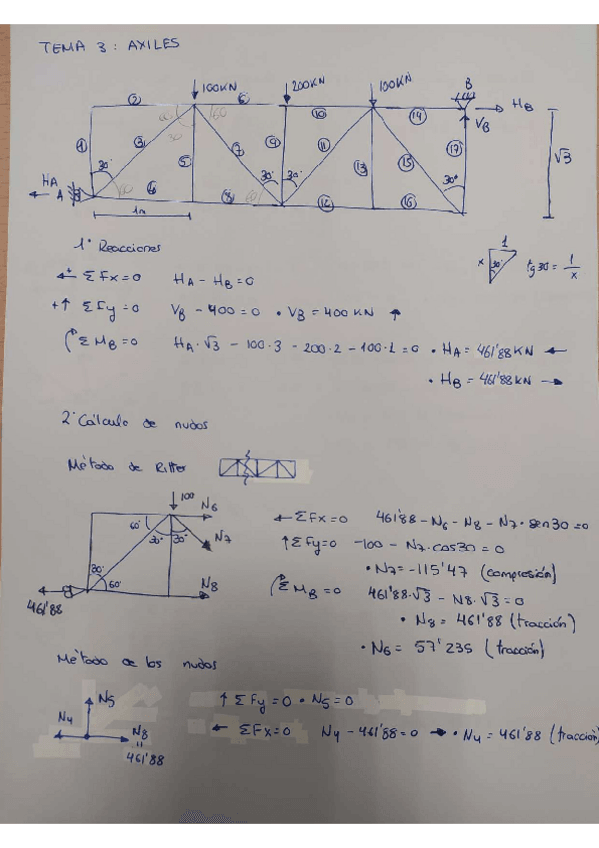 TEMA 3: AXILES
100KN 200KN 100KN B
② ⑥ ⑩ ⑭ HB
VB
① ③ ⑤ ⑦ ⑨ ⑪ ⑬ ⑮ ⑰ √3
60 60
30
30° 30° 30° 30°
HA A 60 ④ ⑧ 60 ⑫ ⑯
1m
1º Reacciones
ΣFx=0 HA - HB=0
1
x 30° tg30 = 1/x
+↑ ΣFy=0 VB - 400 = 0 • VB = 400 KN ↑
ΣMB=0 HA·√3 - 100·3 - 200·2 - 100·1 = 0 • HA = 461'88KN ←
• HB = 461'88KN →
2º Cálculo de nudos
Método de Ritter
100 N6
60° 30° 30° N7
30° 60° N8
461'88
← ΣFx=0 461'88 - N6 - N8 - N7·sen30 = 0
↑ΣFy=0 -100 - N7·cos30 = 0
• N7 = -115'47 (compresión)
ΣMB=0 461'88·√3 - N8·√3 = 0
• N8 = 461'88 (tracción)
• N6 = 57'235 (tracción)
Método de los nudos
N5
N4 N8
=
461'88
↑ ΣFy=0 • N5=0
← ΣFx=0 N4 - 461'88 = 0 → • N4 = 461'88 (tracción)